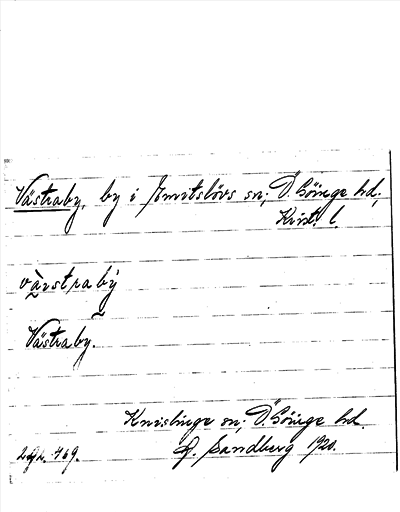 Västraby, by i Emitslövs sn; Ö. Göinge hd;
Krist. l.
väistraby
Västraby.
Knislinge sn; Ö. Göinge hd.
Sandberg 1920.